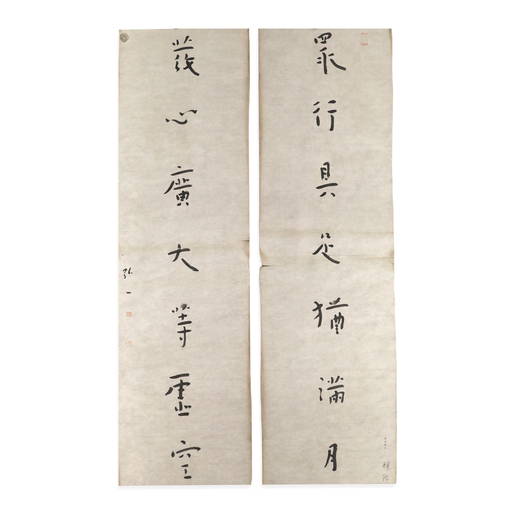 眾行具足猶滿月
發心廣大等虛空
弘一